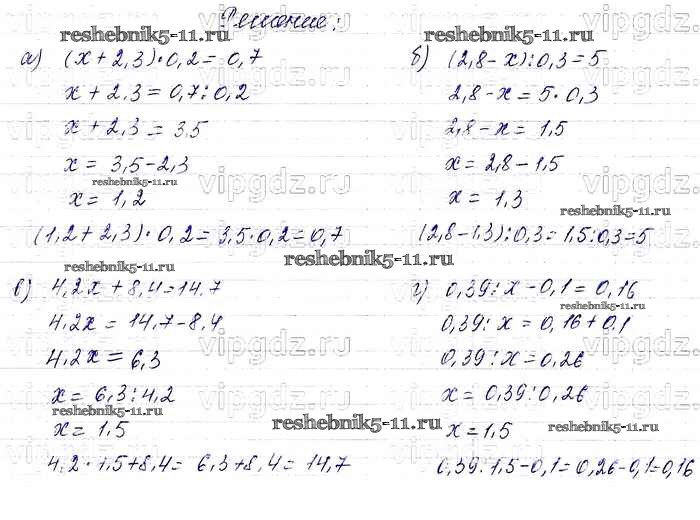 Решение:
reshebnik5-11.ru
reshebnik5-11.ru
vipgdz.ru
vipgdz.ru
а) (x+2,3)·0,2=0,7
x+2,3=0,7:0,2
x+2,3=3,5
x=3,5-2,3
reshebnik5-11.ru
x=1,2
(1,2+2,3)·0,2=3,5·0,2=0,7
б) (2,8-x):0,3=5
2,8-x=5·0,3
2,8-x=1,5
x=2,8-1,5
x=1,3
reshebnik5-11.ru
(2,8-1,3):0,3=1,5:0,3=5
vipgdz.ru
vipgdz.ru
reshebnik5-11.ru
reshebnik5-11.ru
в) 4,2x+8,4=14,7
4,2x=14,7-8,4
4,2x=6,3
x=6,3:4,2
reshebnik5-11.ru
x=1,5
reshebnik5-11.ru
4,2·1,5+8,4=6,3+8,4=14,7
г) 0,39:x-0,1=0,16
reshebnik5-11.ru
0,39:x=0,16+0,1
0,39:x=0,26
x=0,39:0,26
x=1,5
reshebnik5-11.ru
0,39:1,5-0,1=0,26-0,1=0,16
vipgdz.ru
vipgdz.ru
vipgdz.ru
vipgdz.ru